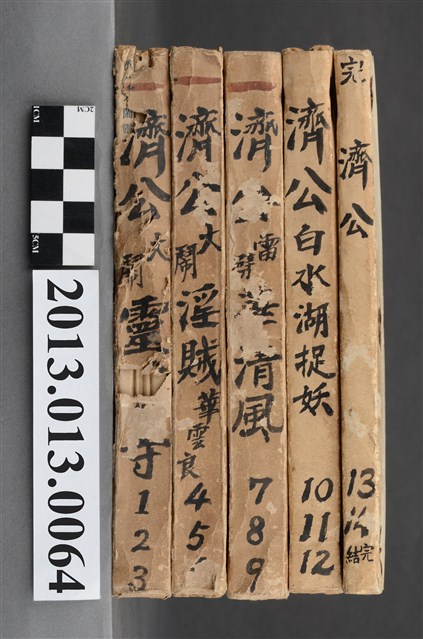 濟公大鬧靈
守
1
2
3
濟公大鬧淫賊華雲良
4
5
濟公雷劈
清風
7
8
9
濟公白水湖捉妖
10
11
12
完
濟公
13
完結
2013.013.0064
2CM
5CM